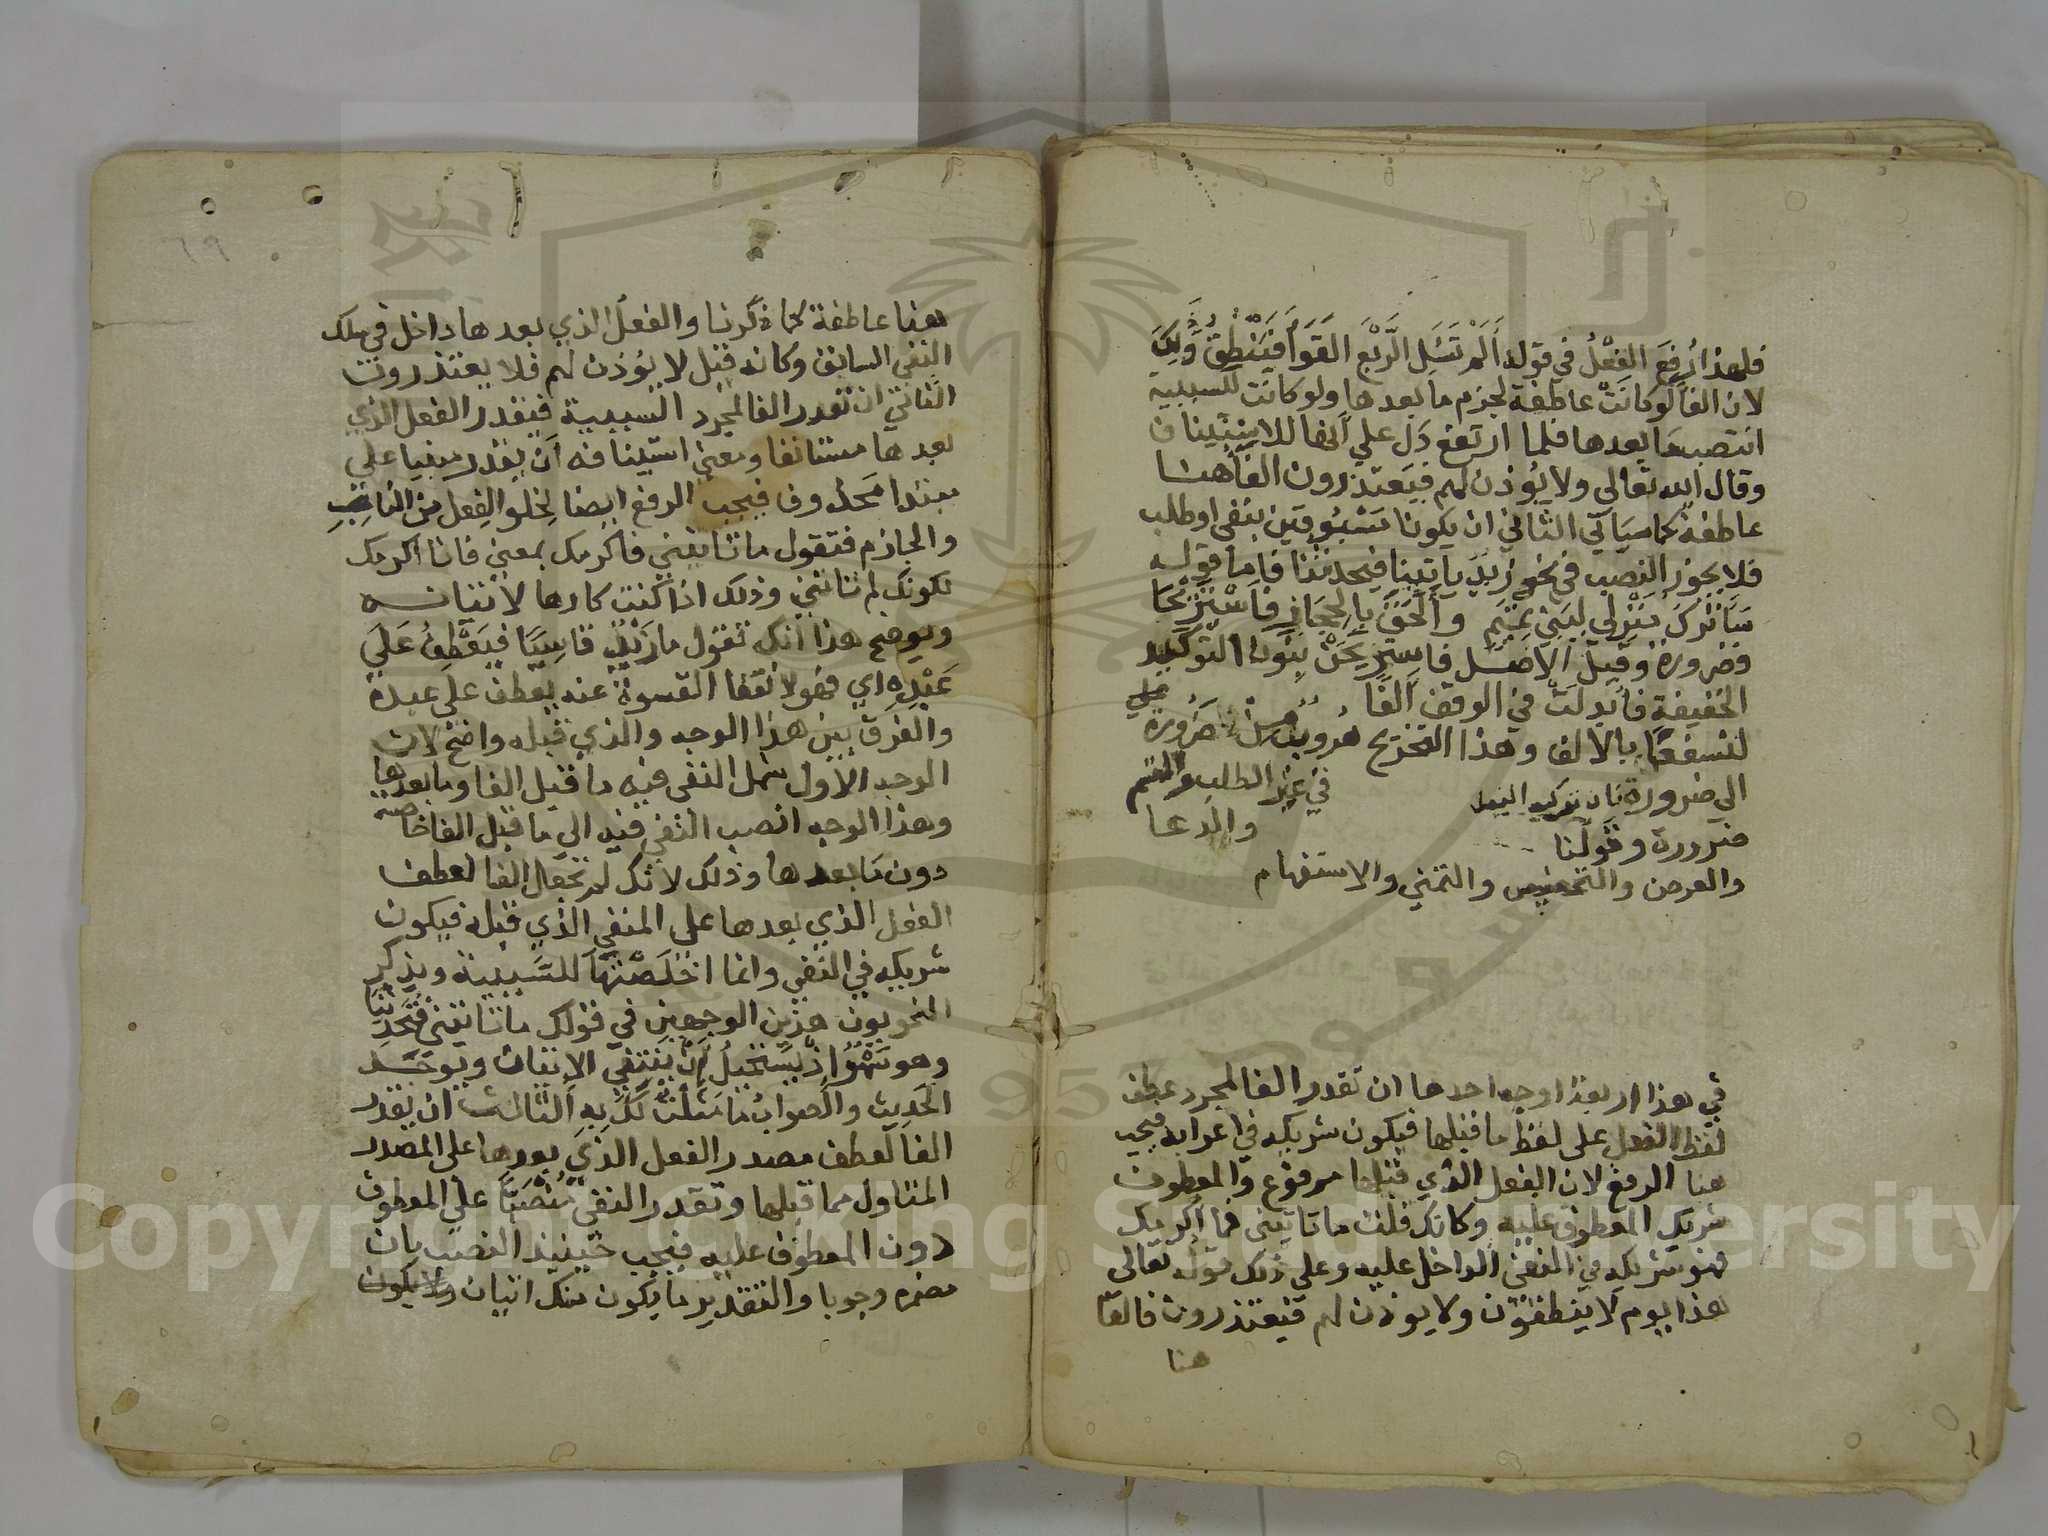 فلهذا رُفِعَ الفِعْلُ في قوله أَلَمْ تَسْئَلِ الرَّبْعَ القَوَاءَ فَيَنْطِقُ وذلِكَ
لان الفا لو كانَتْ عاطفة لجزم ما بعدها ولو كانت للسببية
انتصب ما بعدها فلما ارتفع دَلّ علي أنها للاستيناف
وقال الله تعالي ولا يُؤذن لهم فيَعتذرون الفا هنا
عاطفة كما سيأتي الثاني ان يكونا مَسْبُوقين بنفي او طلب
فلا يجوز النصب في نحو زيد ياتينا فيحدثنا فاما قوله
سَأترُكُ مَنْزِلي لِبَنِي تَمِيمٍ وأَلْحَقُ بِالحِجَازِ فَأَسْتَرِيْحَا
فضرورة وقيل الاصل فاستريحن بنون التوكيد
الخفيفة فأبدلت في الوقف ألفًا
لنسفعًا بالالف وهذا التخريج هروب من ضرورة
الي ضرورة فان توكيد الفعل في غير الطلب والقسم
ضرورة وقولنا والدعا
والعرض والتحضيض والتمني والاستفهام
في هذا اربعة اوجه احدها ان تقدر الفا لمجرد عطف
لفظ الفعل على لفظ ما قبلها فيكون شريكه في اعرابه فيجب
هنا الرفع لان الفعل الذي قبلها مرفوع والمعطوف
شريك المعطوف عليه وكانك قلت ما تاتيني فما أكرمك
فهو شريكه في النفي الداخل عليه وعلي ذلك قوله تعالى
هذا يوم لا ينطقون ولا يوذن لهم فيعتذرون فالفا
هنا
٦٩
هنا عاطفة كما ذكرنا والفعل الذي بعدها داخل في سلك
النفي السابق وكانه قيل لا يُؤذن لهم فلا يعتذرون
الثاني ان تقدر الفا لمجرد السببية فيقدر الفعل الذي
بعدها مستانفا ومعني استينافه أن يقدر مبنيا علي
مبتدا محذوف فيجب الرفع ايضا لخلو الفعل من الناصب
والجازم فتقول ما تاتيني فاكرمك بمعني فانا اكرمك
لكونك لم تاتني وذلك اذا كنت كارها لاتيانه
ويوضح هذا انك تقول ما زَيْدٌ قاسِيًا فيَعْطِفُ عَلَي
عَبْدِهِ اي فهو لانتفا القسوة عنه يعطف على عبده
والفرق بين هذا الوجه والذي قبله واضح لان
الوجه الاول شمل النفي فيه ما قبل الفا وما بعدها
وهذا الوجه انصب النفي فيه الي ما قبل الفا خاصة
دون ما بعدها وذلك لانك لم تجعل الفا لعطف
الفعل الذي بعدها على المنفي الذي قبله فيكون
شريكه في النفي وانما اخلصتها للسببية ويذكر
النحويون هذين الوجهين في قولك ما تاتيني فتُحَدِّثُنَا
وهو سَهْوٌ اذ يَستحيلُ أَنْ يَنتفي الاتيان ويوجَدَ
الحَدِيث والصواب ما مَثَّلْتُ لَكَ بِهِ الثالث ان يقدر
الفا لعطف مصدر الفعل الذي بعدها على المصدر
المتاول مما قبلها وتقدر النفي مُنْصَبًّا علي المعطوف
دون المعطوف عليه فيجب حينيذ النصب بان
مضمره وجوبا والتقدير ما يكون منك اتيان ولا يكون